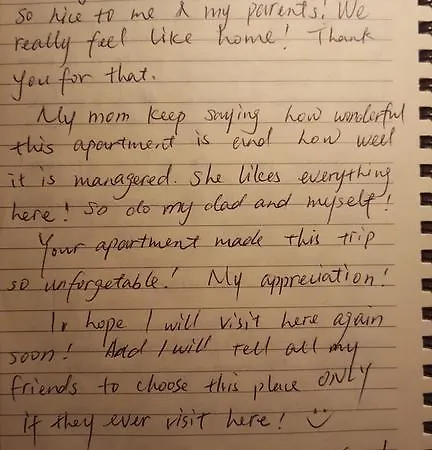 so nice to me & my parents! We
really feel like home! Thank
you for that.
My mom keep saying how wonderful
this apartment is and how well
it is managered. She likes everything
here! So do my dad and myself!
Your apartment made this trip
so unforgetable! My appreciation!
I hope I will visit here again
soon! And I will tell all my
friends to choose this place ONLY
if they ever visit here!